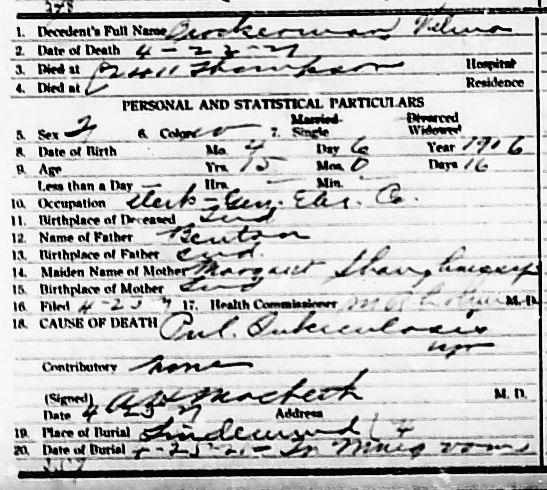 1. Decedent's Full Name Brockerman Velma
2. Date of Death 4-22-21
3. Died at 2411 Thompson Hospital
4. Died at Residence
PERSONAL AND STATISTICAL PARTICULARS
5. Sex F 6. Color w 7. Married Single Divorced Widowed
8. Date of Birth Mo. 4 Day 6 Year 1906
9. Age Yrs. 15 Mos. 0 Days 16
Less than a Day — Hrs. — Min. —
10. Occupation Clerk - Gen. Elec. Co.
11. Birthplace of Deceased Ind
12. Name of Father Benton
13. Birthplace of Father Ind.
14. Maiden Name of Mother Margaret Shaughnessy
15. Birthplace of Mother Ind
16. Filed 4-23-21 17. Health Commissioner M.D.
18. CAUSE OF DEATH Pul. Tuberculosis
Contributory none
(Signed) A H Macbeth M. D.
Date 4 23 21 Address
19. Place of Burial Lindenwood
20. Date of Burial 4-25-21-